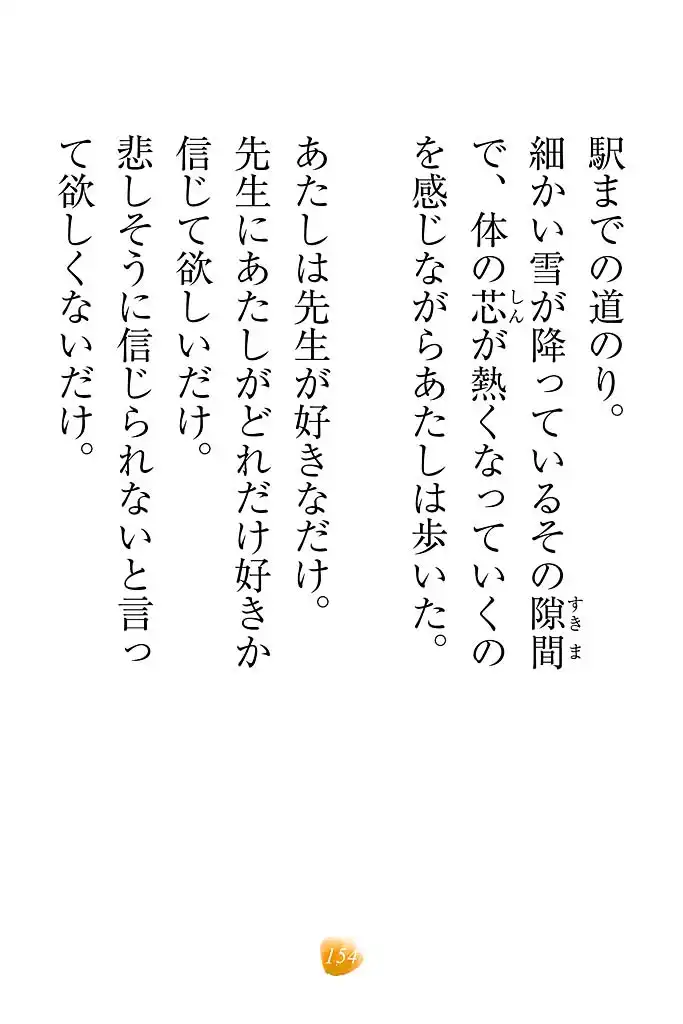 駅までの道のり。
細かい雪が降っているその隙間
すきま
で、体の芯が熱くなっていくの
しん
を感じながらあたしは歩いた。
あたしは先生が好きなだけ。
先生にあたしがどれだけ好きか
信じて欲しいだけ。
悲しそうに信じられないと言っ
て欲しくないだけ。
154